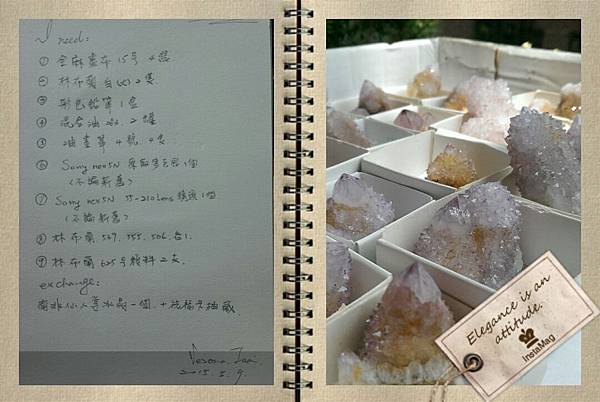 I need:
① 全麻畫布15号 4隻
② 林布蘭白(大) 2隻
③ 彩色鉛筆1盒
④ 混合油 2罐
⑤ 油畫筆4號 4隻
⑥ Sony nex5N 1個
(不論新舊)
⑦ Sony nex5N 55-210 Lens 鏡頭1個
(不論新舊)
⑧ 林布蘭 539. 355. 506. 各1.
⑨ 林布蘭 625号顏料 2支.
exchange:
南非仙人掌水晶一個. +
2015. 5. 9.
Elegance is an
attitude.
InstaMag